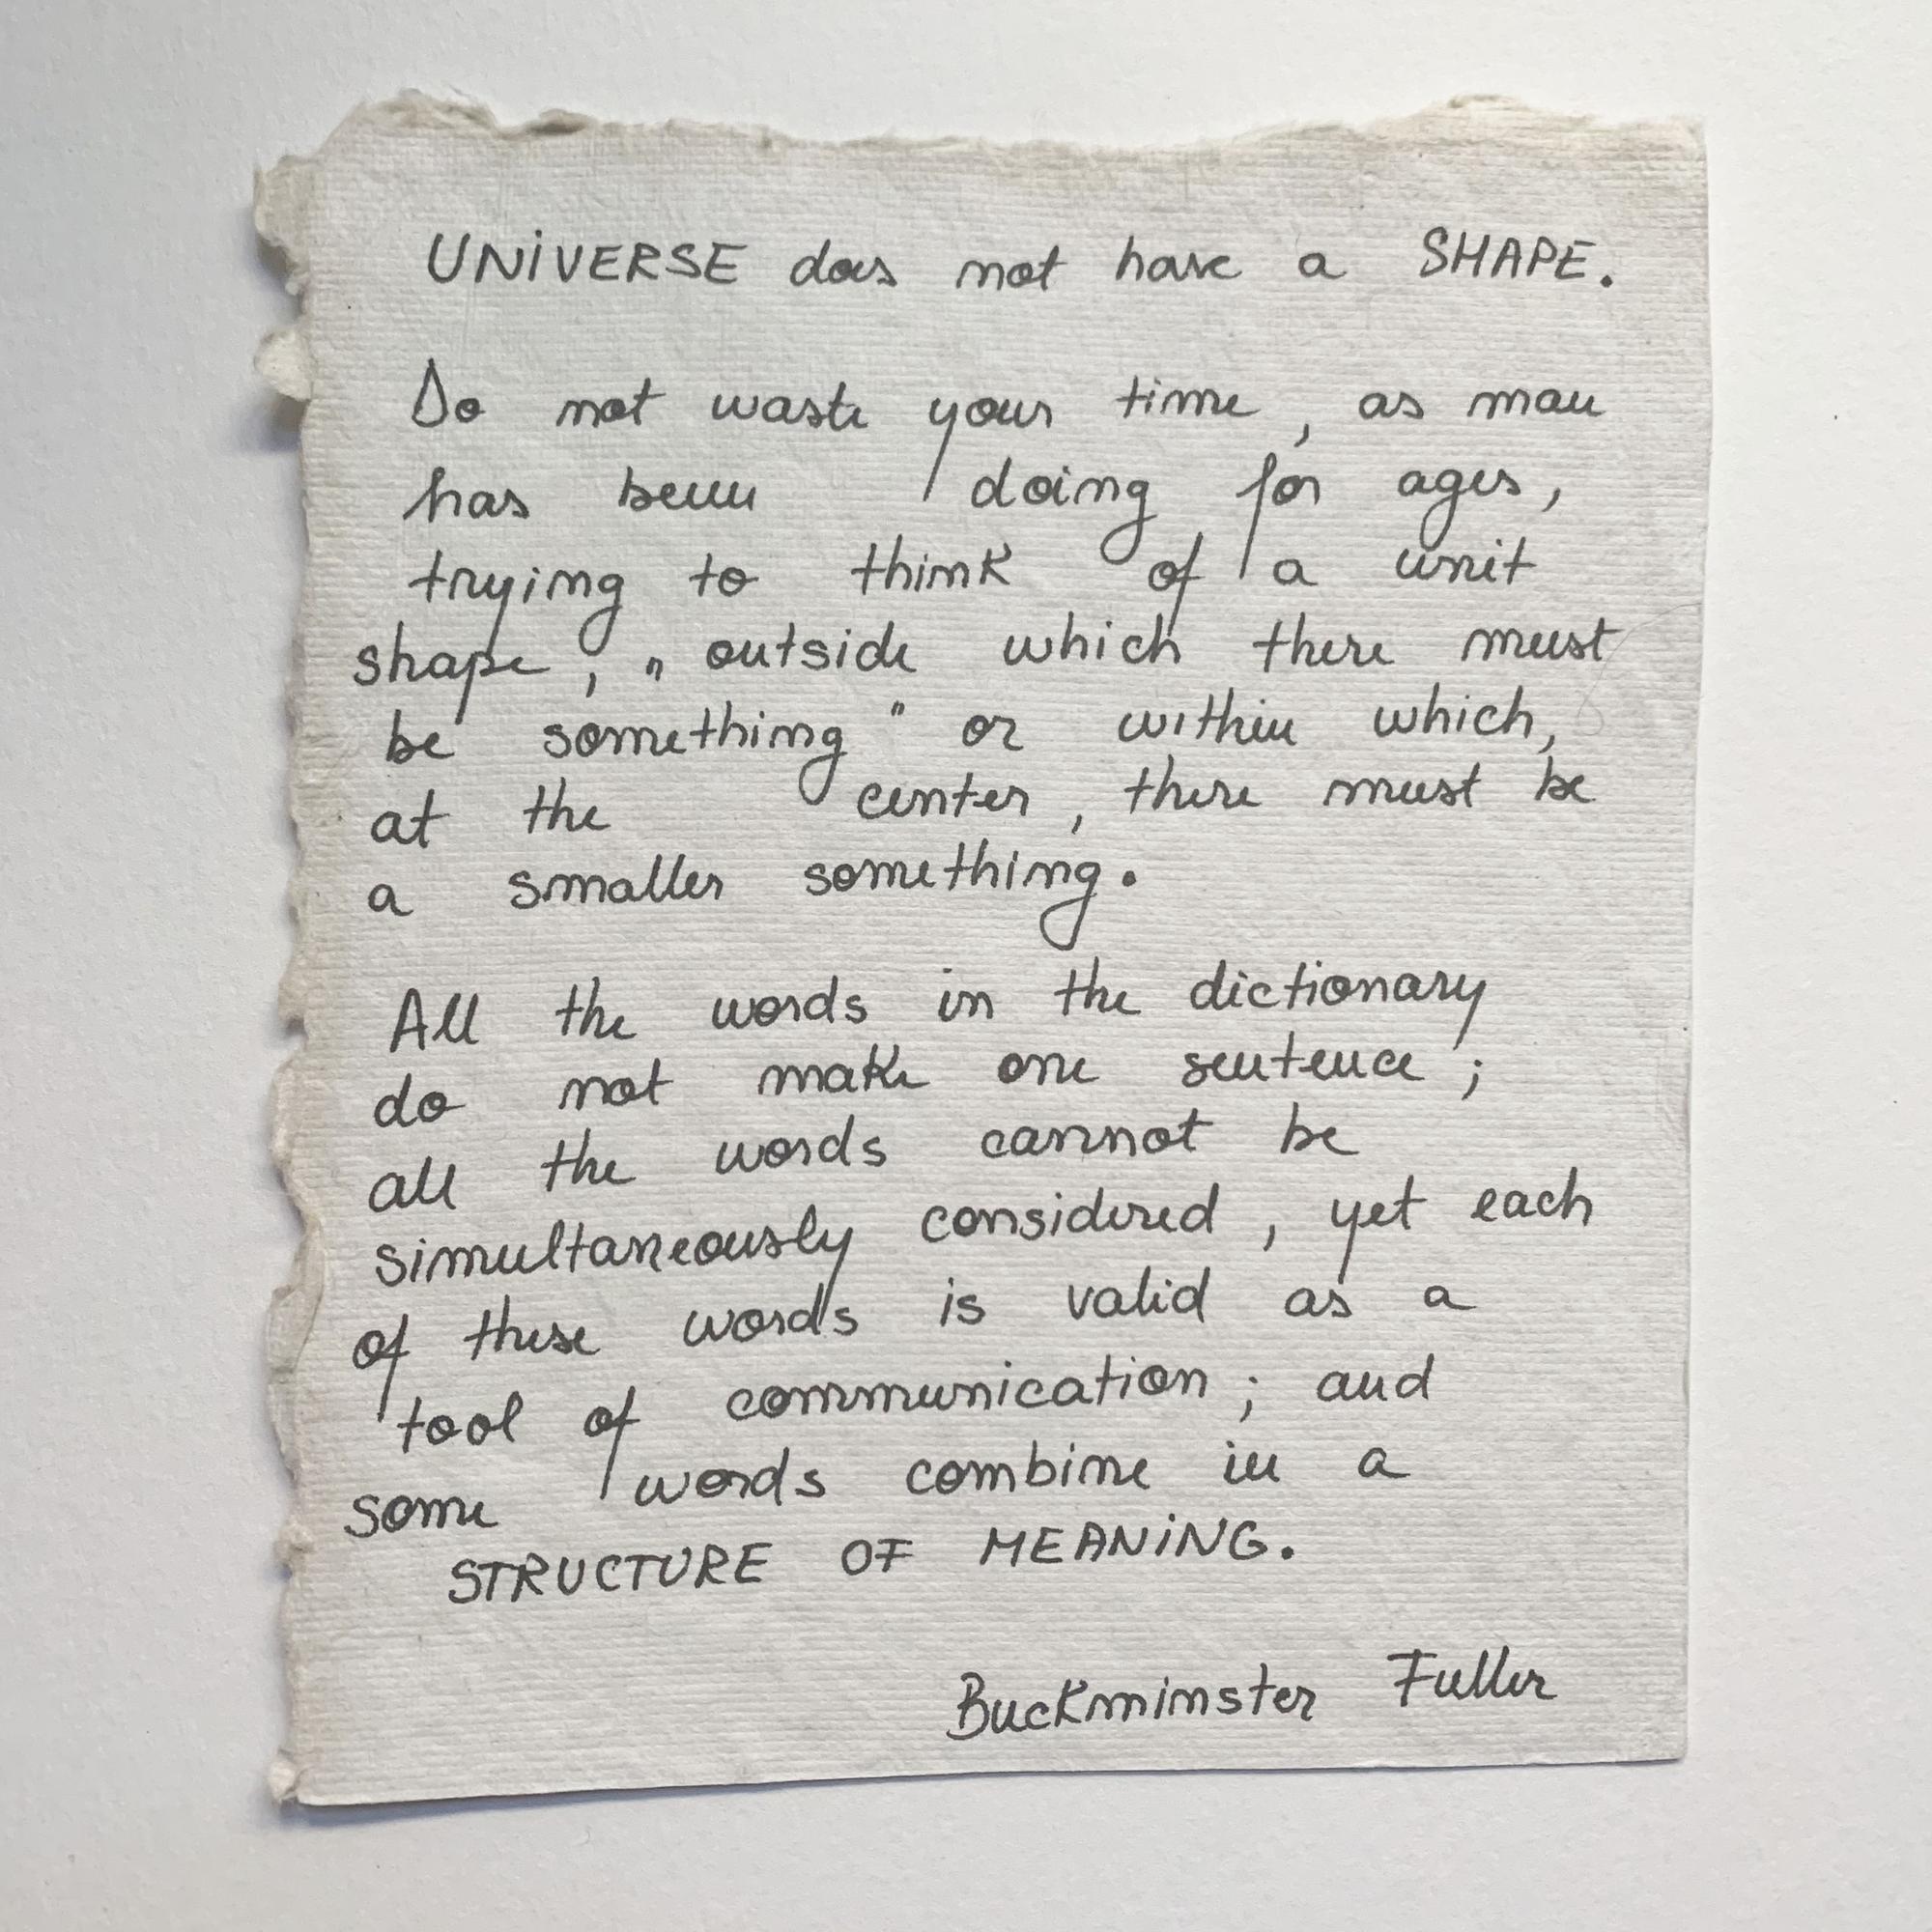 UNiVERSE does not have a SHAPE.
Do not waste your time, as man
has been doing for ages,
trying to think of a unit
shape, „outside which there must
be something" or within which,
at the center, there must be
a smaller something.
All the words in the dictionary
do not make one sentence;
all the words cannot be
simultaneously considered, yet each
of these words is valid as a
tool of communication; and
some words combine in a
STRUCTURE OF MEANiNG.
Buckminster Fuller